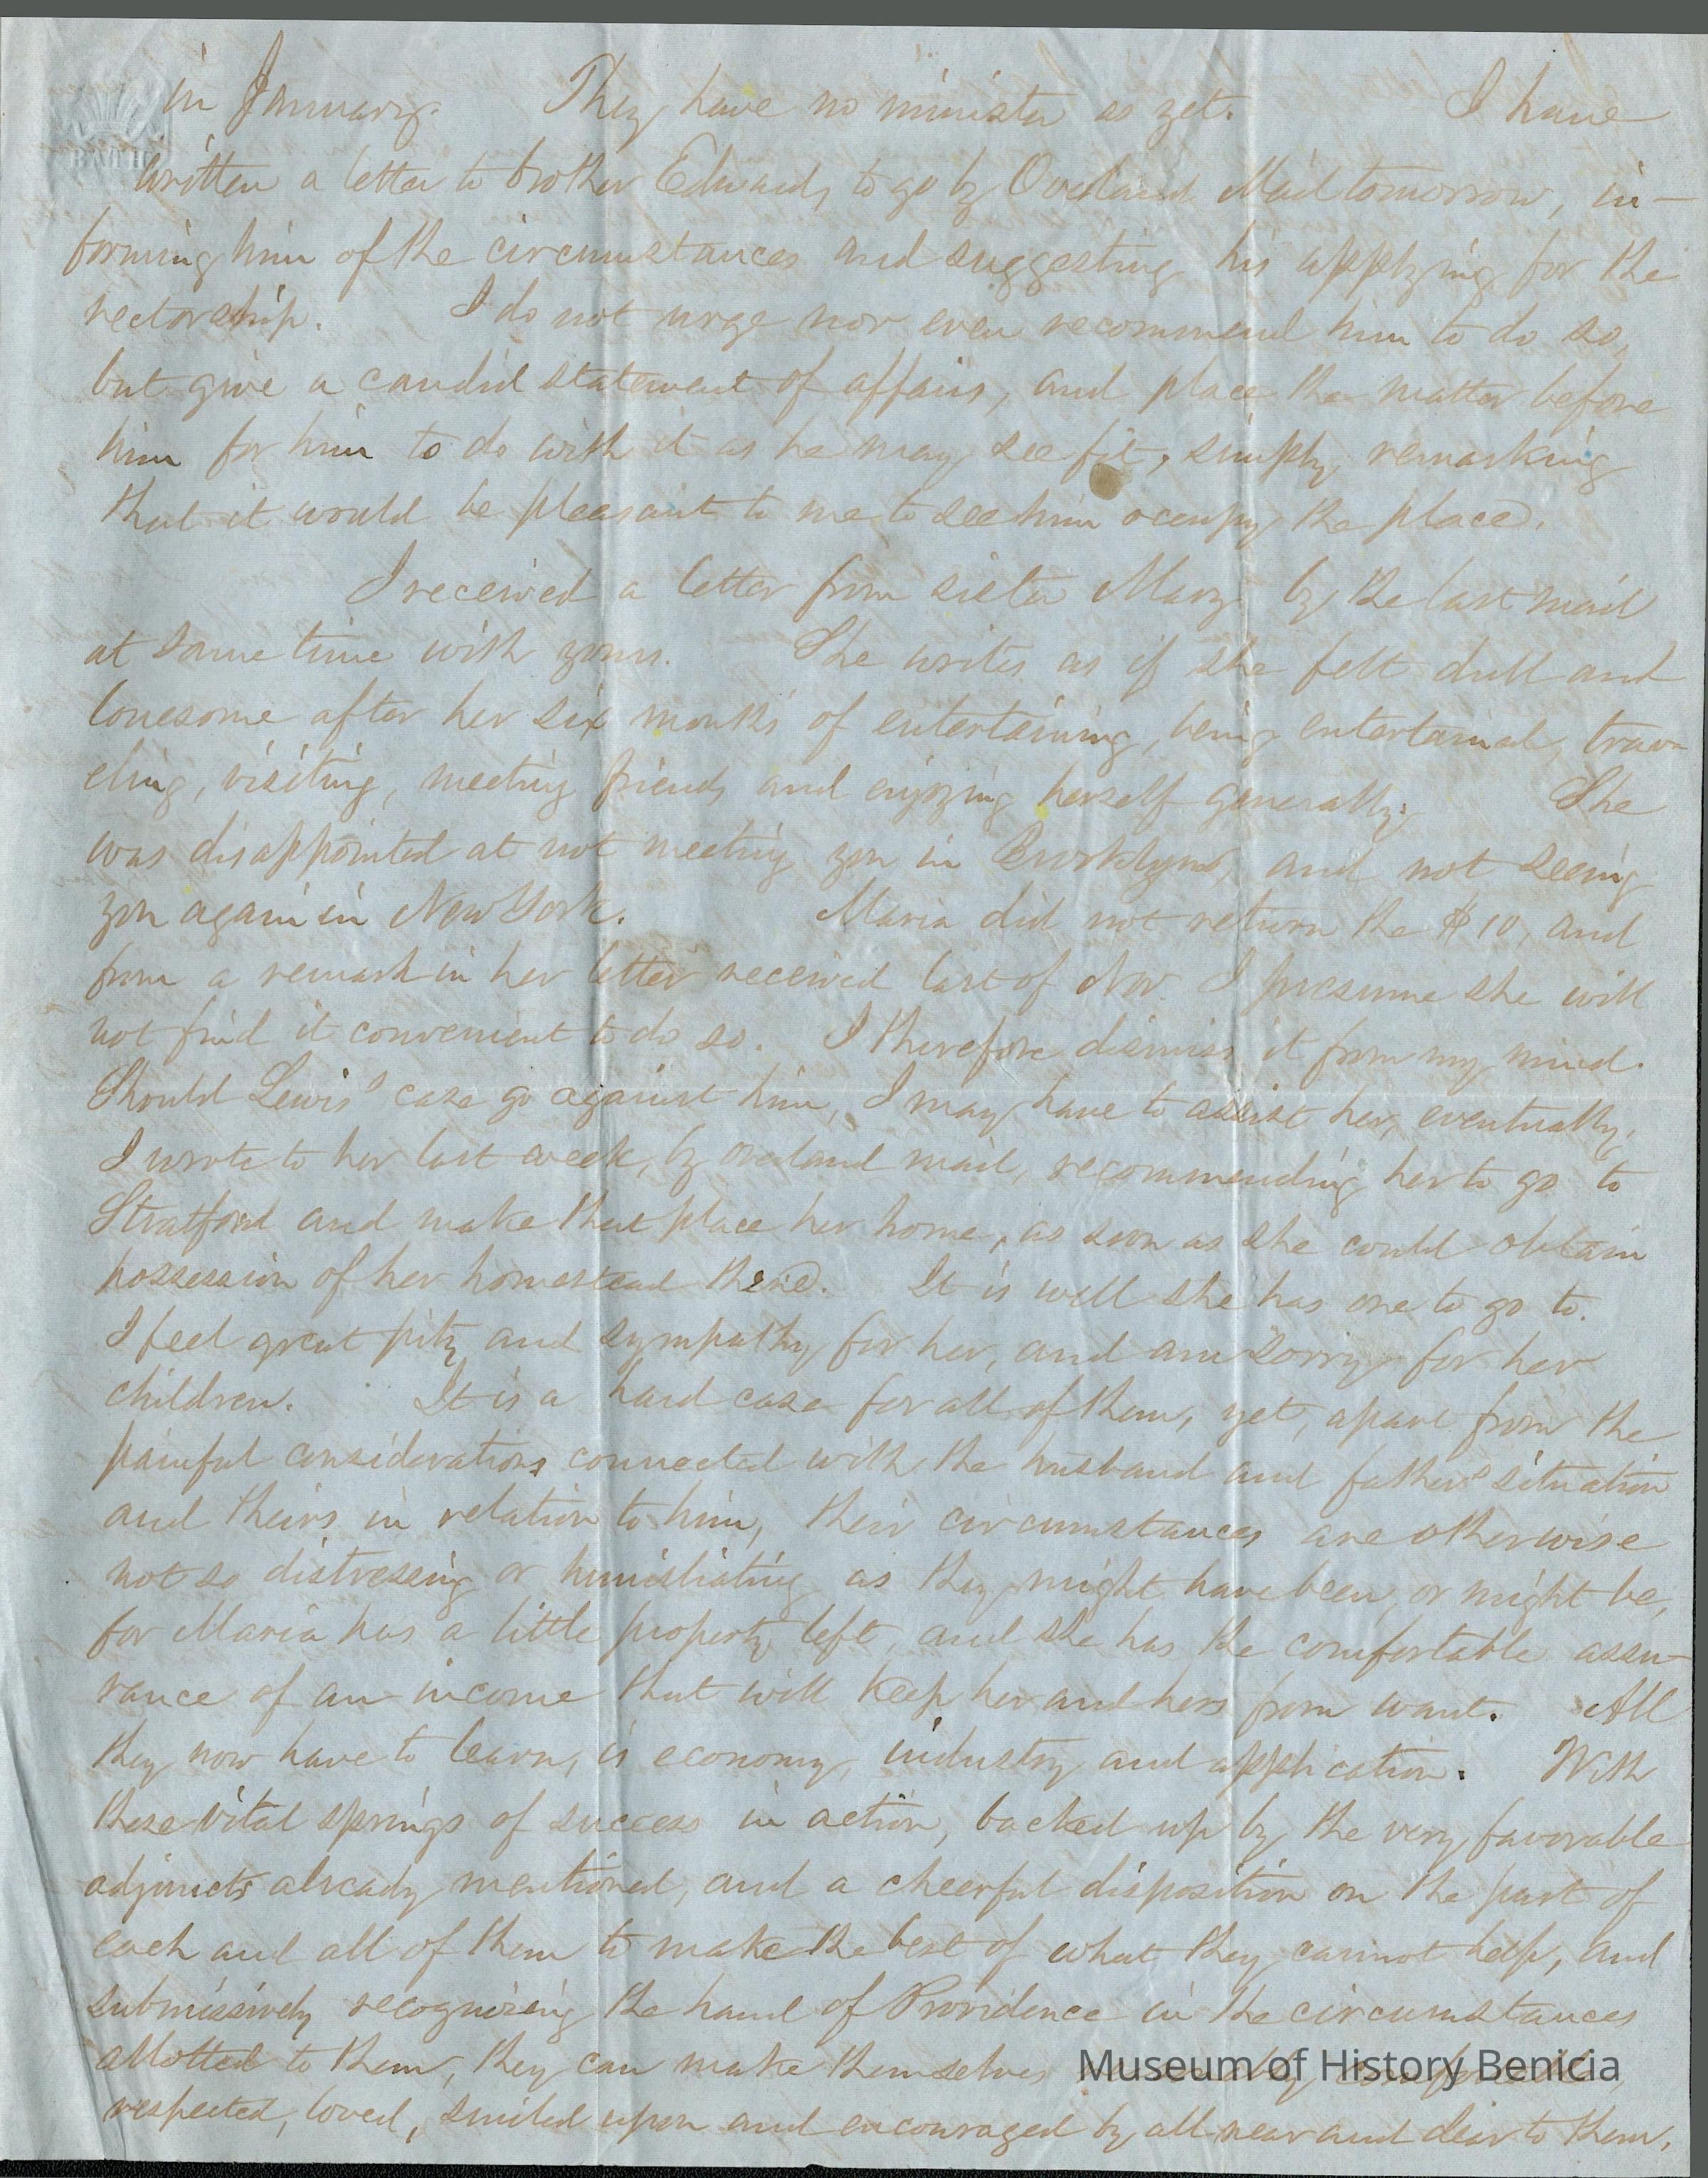 BATH
in January. They have no minister as yet. I have
written a letter to brother Edwards, to go by Overland Mail tomorrow, in-
forming him of the circumstances and suggesting his applying for the
rectorship. I do not urge nor even recommend him to do so,
but give a candid statement of affairs, and place the matter before
him for him to do with it as he may see fit, simply remarking
that it would be pleasant to me to see him occupy the place.
I received a letter from sister Mary by the last mail
at same time with yours. She writes as if she felt dull and
lonesome after her six months of entertaining, being entertained, trav-
eling, visiting, meeting friends and enjoying herself generally. She
was disappointed at not meeting you in Brooklyn, and not seeing
you again in New York. Maria did not return the $10, and
from a remark in her letter received last of Nov I presume she will
not find it convenient to do so. I therefore dismiss it from my mind.
Should Lewis' case go against him, I may have to assist her, eventually.
I wrote to her last week, by overland mail, recommending her to go to
Stratford and make that place her home, as soon as she could obtain
possession of her homestead there. It is well she has one to go to.
I feel great pity and sympathy for her, and am sorry for her
children. It is a hard case for all of them, yet, apart from the
painful considerations connected with the husband and father's situation
and theirs in relation to him, their circumstances are otherwise
not so distressing or humiliating as they might have been, or might be,
for Maria has a little property left, and she has the comfortable assu-
rance of an income that will keep her and hers from want. All
they now have to learn, is economy, industry and application. With
these vital springs of success in action, backed up by the very favorable
adjuncts already mentioned, and a cheerful disposition on the part of
each and all of them to make the best of what they cannot help, and
submissively recognizing the hand of Providence in the circumstances
allotted to them, they can make themselves
Museum of History Benicia
respected, loved, smiled upon and encouraged by all near and dear to them,